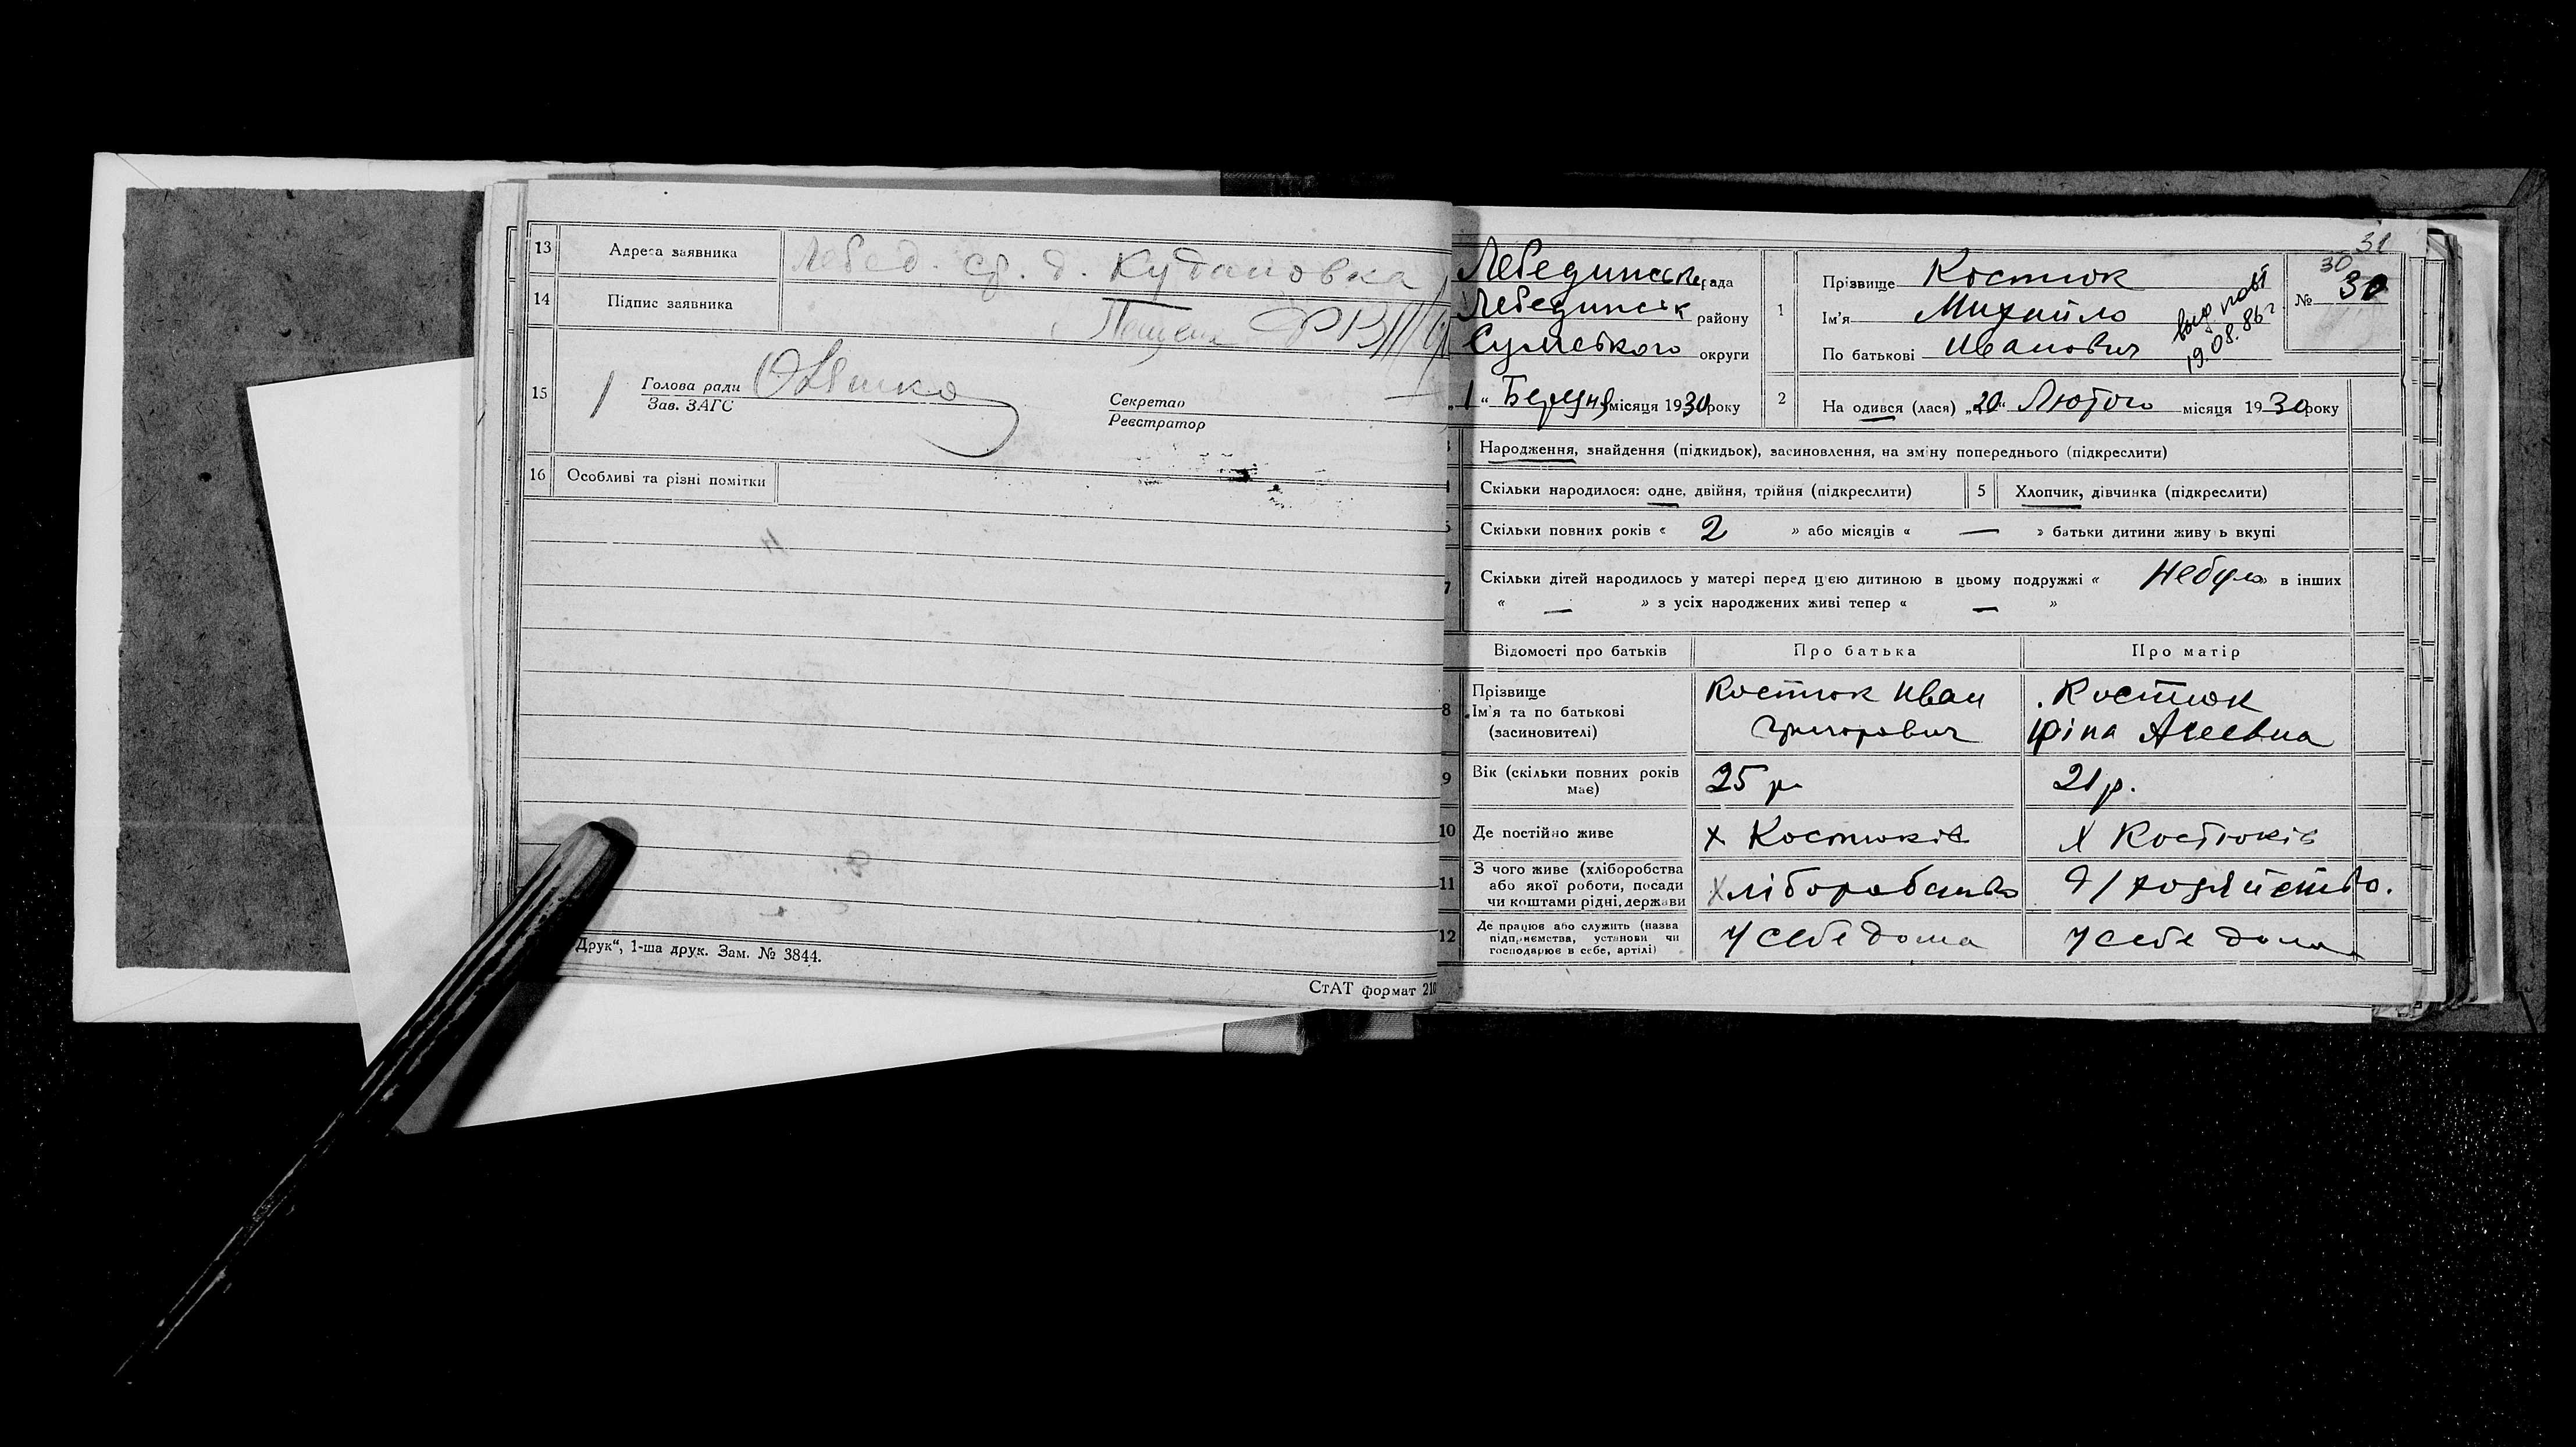 13 Адреса заявника Лебед. с/. д. Кудановка
14 Підпис заявника
15 Голова ради
Зав. ЗАГС
Секретар
Реєстратор
16 Особливі та різні помітки
Друк“, 1-ша друк. Зам. № 3844.
СтАТ формат 210
31
30
Лебединська рада
Лебединськ району
Сумського округи
„1“ Березня місяця 1930 року
1 Прізвище Костюк
Ім'я Михайло
По батькові Иванович
19.08.86 г
№ 30
2 На одився (лася) „20“ Лютого місяця 1930 року
Народження, знайдення (підкидьок), засиновлення, на зміну попереднього (підкреслити)
Скільки народилося: одне, двійня, трійня (підкреслити) 5 Хлопчик, дівчинка (підкреслити)
Скільки повних років « 2 » або місяців « — » батьки дитини живу ь вкупі
7 Скільки дітей народилось у матері перед цією дитиною в цьому подружжі « Небуло » в інших
« — » з усіх народжених живі тепер « — »
Відомості про батьків Про батька Про матір
8 Прізвище
Ім'я та по батькові
(засиновителі)
Костюк Иван
Григорович
Костюк
Іріна
9 Вік (скільки повних років
має)
25 р.
21 р.
10 Де постійно живе х Костюків х Костюків
11 З чого живе (хліборобства
або якої роботи, посади
чи коштами рідні, держави
Хліборобство
д/хозяйство.
12 Де працює або служить (назва
підприємства, установи чи
господарює в себе, артілі)
У себе дома
У себе дома